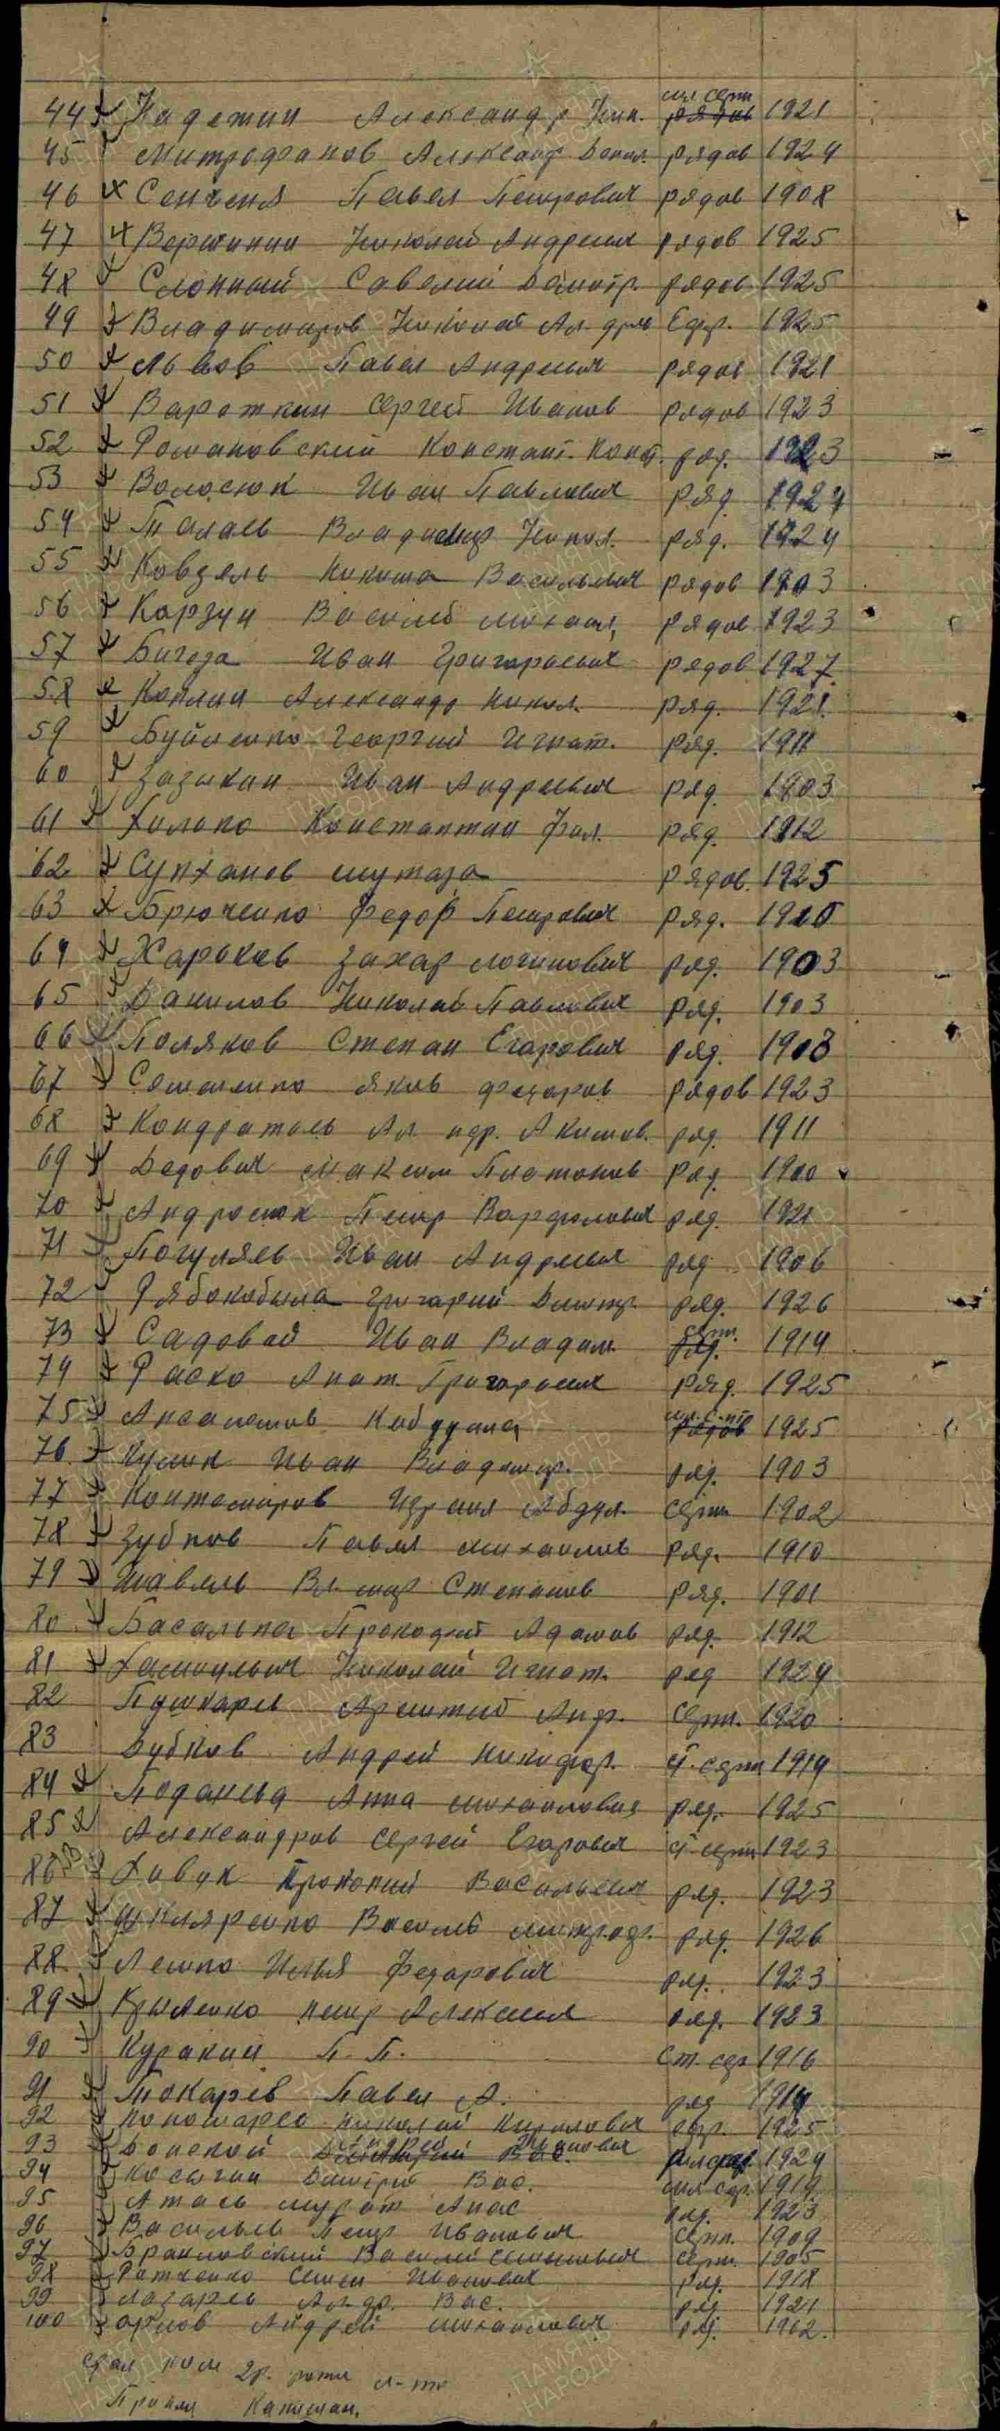 44 Надежин Александр Ник. мл серж рядов 1921
45 Митрофанов Александ Данил. рядов 1924
46 Сенченя Павел Петрович рядов 1908
47 Вершинин Николай Андреевич рядов 1925
48 Слонный Савелий Дмитр. рядов 1925
49 Владимиров Николай Ал-дров Ефр. 1925
50 Львов Павел Андреевич рядов 1921
51 Вароткин Сергей Иванов рядов 1923
52 Романовский Констант. Конст. ряд. 1923
53 Волосюк Иван Павлович ряд 1924
54 Палаев Владимир Никол. ряд. 1924
55 Ковзель Никита Васильевич рядов 1903
56 Корзун Василий Михаил. рядов 1923
57 Бигеза Иван Григорьевич рядов 1927
58 Коплин Александр Никол. ряд. 1921
59 Буйленко Георгий Игнат. ряд. 1911
60 Зазыкин Иван Андреевич ряд. 1903
61 Хилько Константин Фил. ряд. 1912
62 Султанов Мутаза рядов. 1925
63 Брюченко Федор Петрович ряд. 1910
64 Жарьков Захар Логинович ряд. 1903
65 Данилов Николай Павлович ряд. 1903
66 Поляков Степан Егорович ряд. 1903
67 Семененко Яков Федоров рядов 1923
68 Кондратель Ал. ндр. Акимов. ряд. 1911
69 Дедович Максим Платонов ряд 1900
70 Андросюк Петр Варфолович ряд. 1921
71 Погуляев Иван Андреевич ряд 1906
72 Рябокобыла Григорий Дмитр. ряд. 1926
73 Садовой Иван Владим. серж. ряд. 1914
74 Раско Анат. Григорьевич ряд. 1925
75 Аксаметов мл. с-нт рядов 1925
76 Кулик Иван Владимир. ряд. 1903
77 Контемиров Абдул. серж 1902
78 Зубков Павел Михайлов ряд. 1910
79 Шавель Вл-мир Степанов ряд. 1901
80 Басалыга Прокофий Адамов ряд. 1912
81 Самойлыч Николай Игнат. ряд 1924
82 Пушкарев Андр. серж. 1920
83 Дубков Андрей Никифор. ст. серж 1914
84 Анна Михайловна ряд. 1925
85 Александров Сергей Егорович ст серж 1923
86 Хавук Прокопий Васильевич ряд. 1923
87 Шкляренко Василий Митроф. ряд. 1926
88 Лешко Илья Федорович ряд. 1923
89 Крыленко Петр Алексеев ряд. 1923
90 Куракин П. П. ст. сер 1916
91 Токарев Павел А. ряд 1914
92 Пономарев Николай Кирилович ефр. 1925
93 Донской 1924
94 Косыгин Дмитрий Вас. мл сер. 1919
95 Атаев Мурат Апас ряд. 1923
96 Васильев Петр Иванович серж. 1909
97 Браиловский Василий Семенович серж. 1905
98 Ратченко Семен Иванович ряд. 1918
99 Лазарев Ал-др. Вас. ряд 1921
100 Орлов Андрей Михайлович ряд. 1902.
Сдал ком 2р. роты л-т
Принял Капитан.